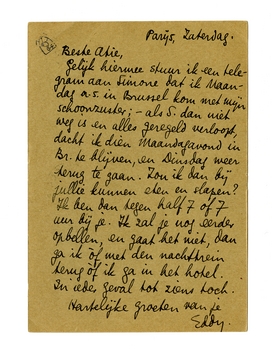 Parijs, Zaterdag.
Beste Atie,
Gelijk hiermee stuur ik een tele-
gram aan Simone dat ik Maan-
dag a.s. in Brussel kom met mijn
schoonzuster; – als S. dan niet
weg is en alles geregeld verloopt,
dacht ik dien Maandagavond in
Br. te blijven, en Dinsdag weer
terug te gaan. Zou ik dan bij
jullie kunnen eten en slapen?
Ik ben dan tegen half 7 of 7
uur bij je. Ik zal je nog eerder
opbellen, en gaat het niet, dan
ga ik òf met den nachttrein
terug òf ik ga in het hotel.
In ieder geval tot ziens toch.
Hartelijke groeten van je
Eddy.